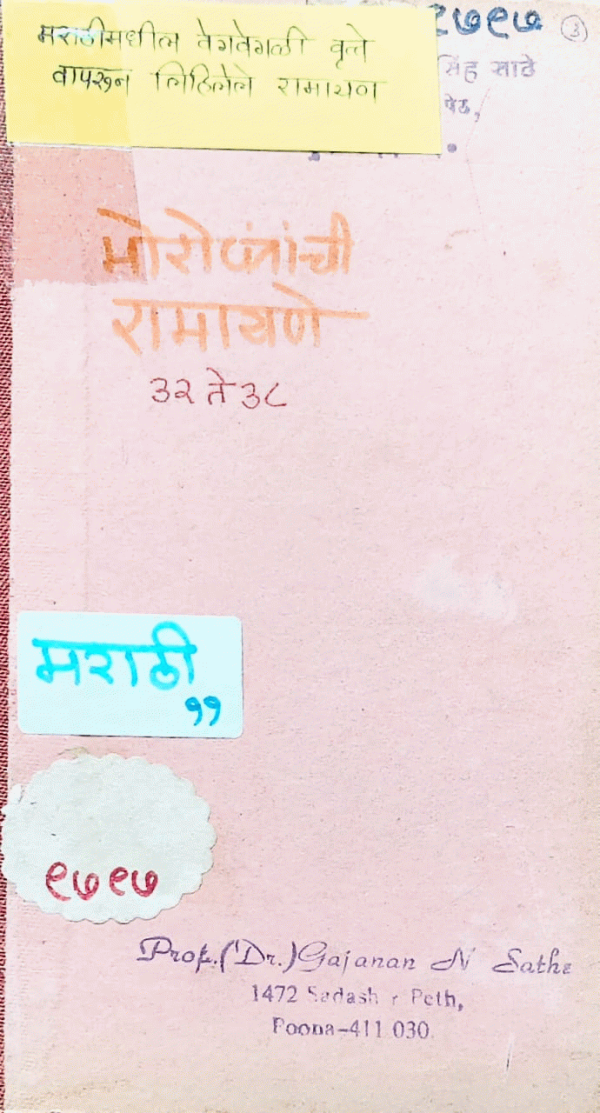 मराठीमधील वेगवेगळी वृत्ते
वापरून लिहिलेले रामायण
९७९७ ③
सिंह साठे
पेठ,
मोरोपंतांची
रामायणे
३२ ते ३८
मराठी
११
९७९७
Prof.(Dr.)Gajanan N Sathe
1472 Sadash Peth,
Poona-411 030.